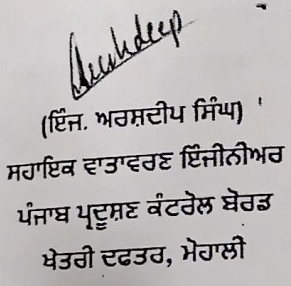 Arshdeep
(ਇੰਜ. ਅਰਸ਼ਦੀਪ ਸਿੰਘ)
ਸਹਾਇਕ ਵਾਤਾਵਰਣ ਇੰਜੀਨੀਅਰ
ਪੰਜਾਬ ਪ੍ਰਦੂਸ਼ਣ ਕੰਟਰੋਲ ਬੋਰਡ
ਖੇਤਰੀ ਦਫਤਰ, ਮੋਹਾਲੀ